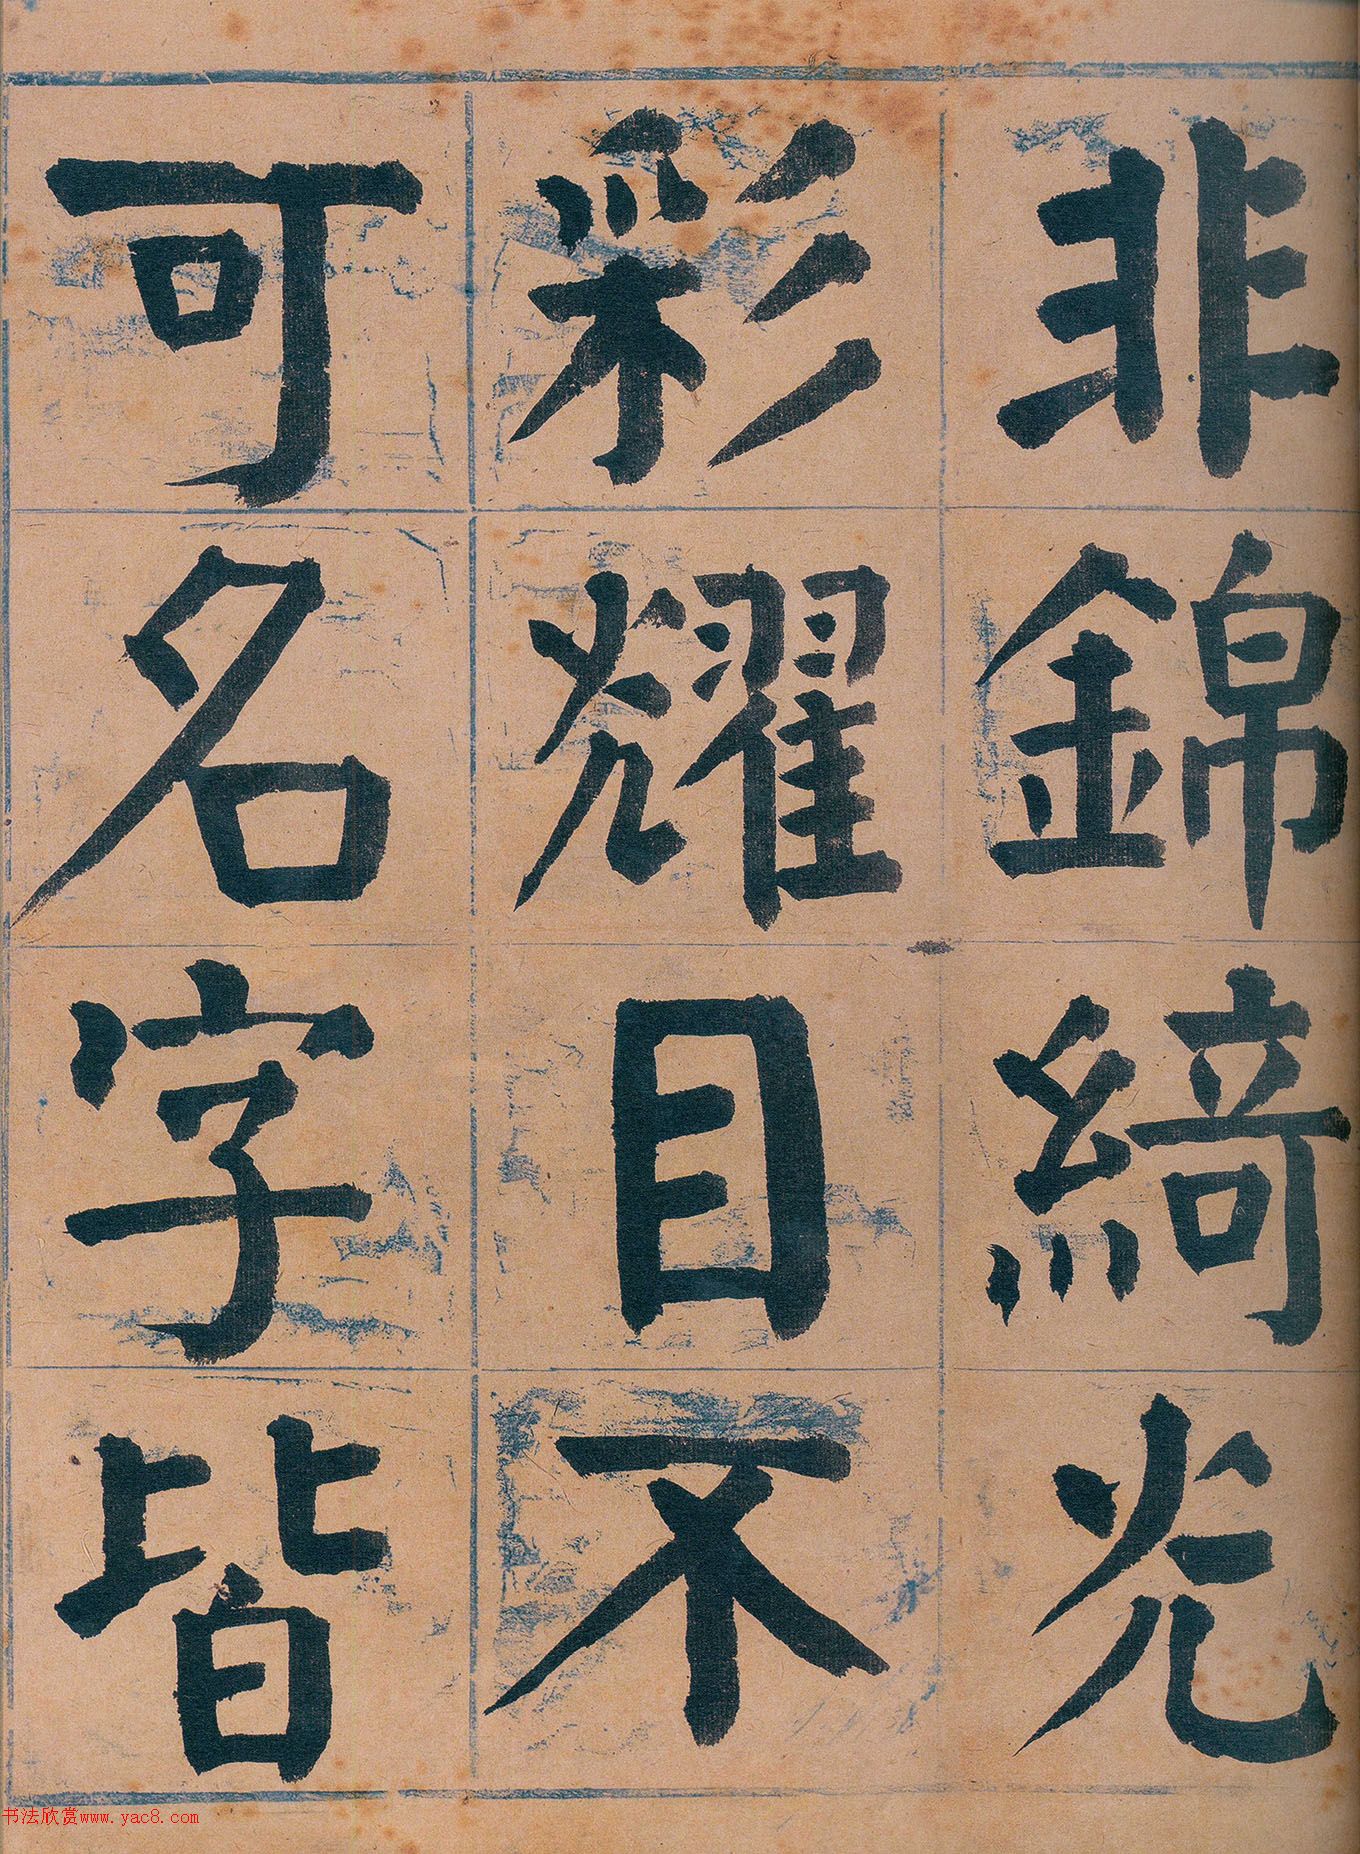 非錦綺光
彩耀目不
可名字皆
书法欣赏www.yac8.com